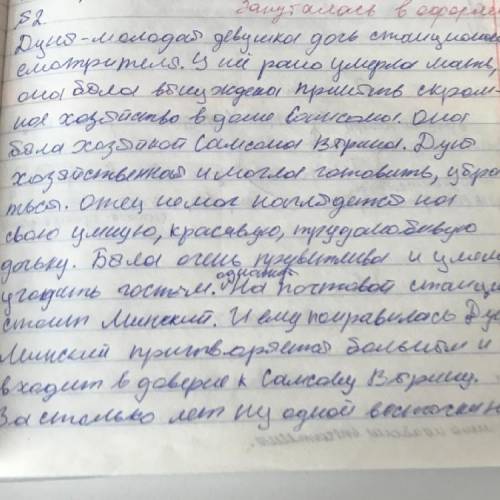 Запуталась в оформл
52
Дуня-молодая девушка дочь станционог
смотрителя. У неё рано умерла мать,
она была вынуждена принять скром-
ное хозяйство в доме Самсона. Она
была хозяйкой Самсона Вырина. Дуня
хозяйственная и могла готовить, убра
ться. Отец не мог наглядется на
свою умную, красивую, трудолюбивую
дочьку. Была очень приветлива и умела
угодить гостям. однажды На почтовой станции
стоит Минский. И ему понравилась Дун
Минский притворяется больным и
входит в доверие к Самсону Вырину.
За столько лет ну одной весточки н